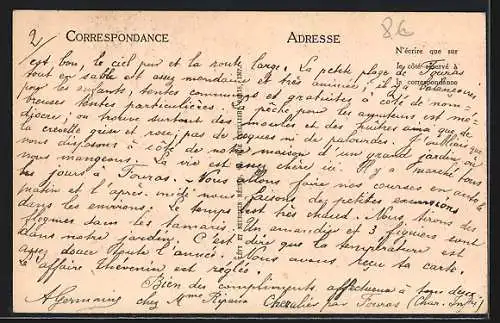 2/
86
CORRESPONDANCE
ADRESSE
N'écrire que sur
le côté réservé à
la correspondance
est bon, le ciel pur et la route large. La petite plage de Fouras
tout en sable est assez mondaine et très animée; il y a balançoires
pour les enfants, tentes communes et gratuites à côté de nom-
breuses tentes particulières. La pêche pour les amateurs est mé-
diocre; on trouve surtout des moules et des huîtres ainsi que de
la crevette grise et rose; pas de coques ni de palourdes. J'oubliais que
nous disposons à côté de notre maison d'un grand jardin où
nous mangeons. La vie est assez chère ici. Il y a marché tous
les jours à Fouras. Nous allons faire nos courses en auto le
matin et l'après-midi nous faisons des petites excursions
dans les environs. Le temps est très chaud. Nous tirons des
flegmes dans les tamaris. Un amandier et 3 figuiers sont
dans notre jardin. C'est dire que la température est
assez douce toute l'année. Nous avons reçu ta carte.
L'affaire Thévenin est réglée.
Bien des compliments affectueux à tous deux
A Germains chez Mme Ripain Chevalier par Fouras (Char. Inf)